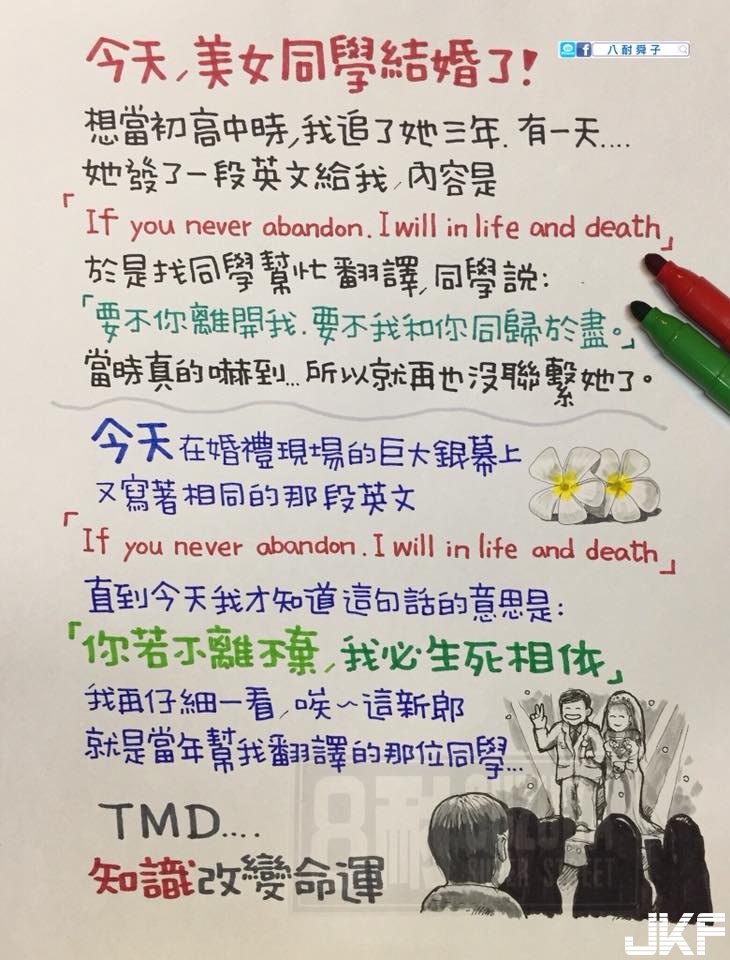 八耐舜子
今天,美女同學結婚了!
想當初高中時,我追了她三年.有一天....
她發了一段英文給我,內容是
「If you never abandon. I will in life and death」
於是找同學幫忙翻譯,同學說:
「要不你離開我.要不我和你同歸於盡。」
當時真的嚇到...所以就再也沒聯繫她了。
今天在婚禮現場的巨大銀幕上
又寫著相同的那段英文
「If you never abandon. I will in life and death」
直到今天我才知道這句話的意思是:
「你若不離不棄,我必生死相依」
我再仔細一看,唉~這新郎
就是當年幫我翻譯的那位同學...
TMD....
知識改變命運
8耐
SUPER STREET
JKF